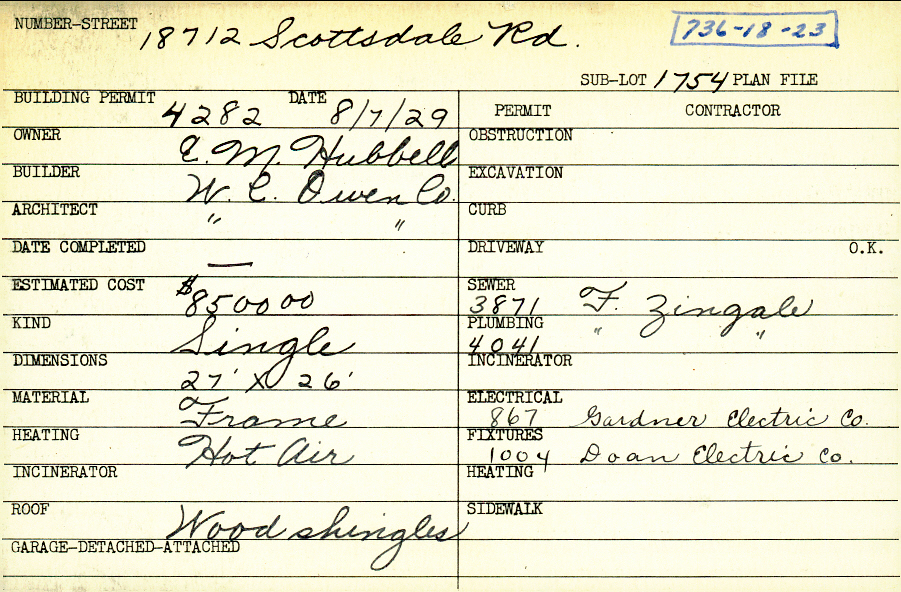 NUMBER-STREET 18712 Scottsdale Rd. 736-18-23
SUB-LOT 1754 PLAN FILE
BUILDING PERMIT 4282 DATE 8/7/29
OWNER E. M. Hubbell
BUILDER W. C. Owen Co.
ARCHITECT " "
DATE COMPLETED —
ESTIMATED COST $8500 00
KIND Single
DIMENSIONS 27' X 26'
MATERIAL Frame
HEATING Hot Air
INCINERATOR
ROOF Wood shingles
GARAGE-DETACHED-ATTACHED
PERMIT CONTRACTOR
OBSTRUCTION
EXCAVATION
CURB
DRIVEWAY O.K.
SEWER 3871 F. Zingale
PLUMBING 4041 " "
INCINERATOR
ELECTRICAL 867 Gardner Electric Co.
FIXTURES 1004 Doan Electric Co.
HEATING
SIDEWALK